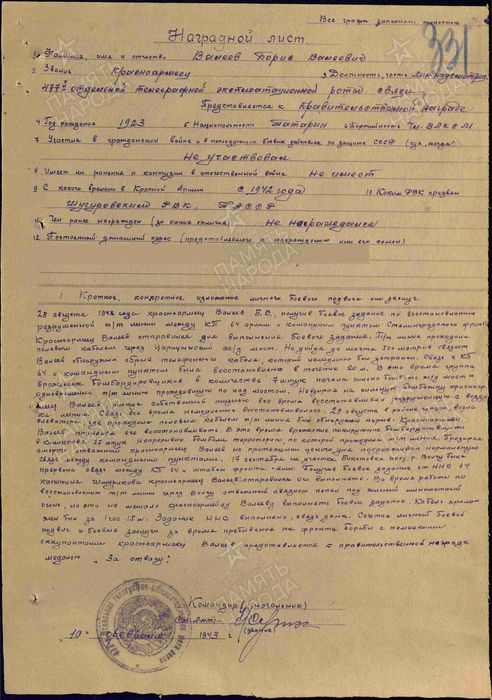 Все графы заполнять полностью
331
Наградной лист.
1 Фамилия, имя и отчество Валеев Борис Валеевич
2 Звание Красноармеец 3 Должность, часть Лин. надсмотрщ.
477й отдельной телеграфной эксплоатационной роты связи
Представляется к правительственной награде
4 Год рождения 1923 5 Национальность Татарин 6 Партийность Чл. ВЛКСМ
7 Участие в гражданской войне и последующих боевых действиях по защите СССР (где, когда)
Не участвовал
8 Имеет ли ранения и контузии в отечественной войне Не имеет
9 С какого времени в Красной Армии с 1942 года 10 Каким РВК призван
Шугуровским РВК, ТАССР
11 Чем ранее награжден (за какие отличия) не награждался
12 Постоянный домашний адрес (представляемого к награждению или его семьи)
I Краткое, конкретное изложение личного боевого подвига или заслуг.
28 августа 1942 года красноармеец Валеев Б.В., получив боевое задание по восстановлению
разрушенной т/т линии между КП 64 армии и командным пунктом Сталинградского фронта
Красноармеец Валеев отправился для выполнения боевого задания. Т/т линия проходила
полевым кабелем через Царицынский ж/д мост. Не дойдя до моста 500 метров связист
Валеев обнаружил обрыв телефонного кабеля который немедленно был устранен. Связь с КП
64 и командным пунктом была восстановлена в течение 20 м. В это время группа
вражеских бомбардировщиков в количестве 7 штук начали бомбить ж/д мост и
одновременно т/т линию проходившую под мостом. Невзирая на сильную бомбежку красноар-
меец Валеев рискуя собственной жизнью все время восстанавливал разрушенную с возду-
ха линию. Связь все время немедленно восстанавливалась. 29 августа в районе
где проходила полевым кабелем т/т линия был обнаружен порыв. Красноармеец
Валеев принялся его восстанавливать. В это время вражеские пикирующие бомбардировщики
в количестве 27 штук непрерывно бомбили территорию, по которой проходила т/т линия. Презирая
смерть отважный красноармеец Валеев на протяжении целого дня поддерживал нормальную
связь между командными пунктами. 14 сентября на участке Бекетовка через р. Волгу была
прервана связь между КП 64 и штабом фронта. Получив боевое задание от ННС 64
капитана красноармеец Валеев отправился его выполнять. Во время работы по
восстановлению т/т линии через Волгу отважный связист попал под сильный минометный
огонь, но это не мешало красноармейцу Валееву выполнить боевое задание. Кабель проло-
жен был за 1 час 15 м. Задание ННС выполнено, связь дана. Считая личный боевой
подвиг и боевые заслуги за время пребывания на фронте борьбы с немецкими
оккупантами красноармейца Валеев представляется к правительственной награде
медалью „За отвагу“.
Командир (начальник)
Ст. л-нт
(звание)
„10“ февраля 1943 г.
ПАМЯТЬ НАРОДА